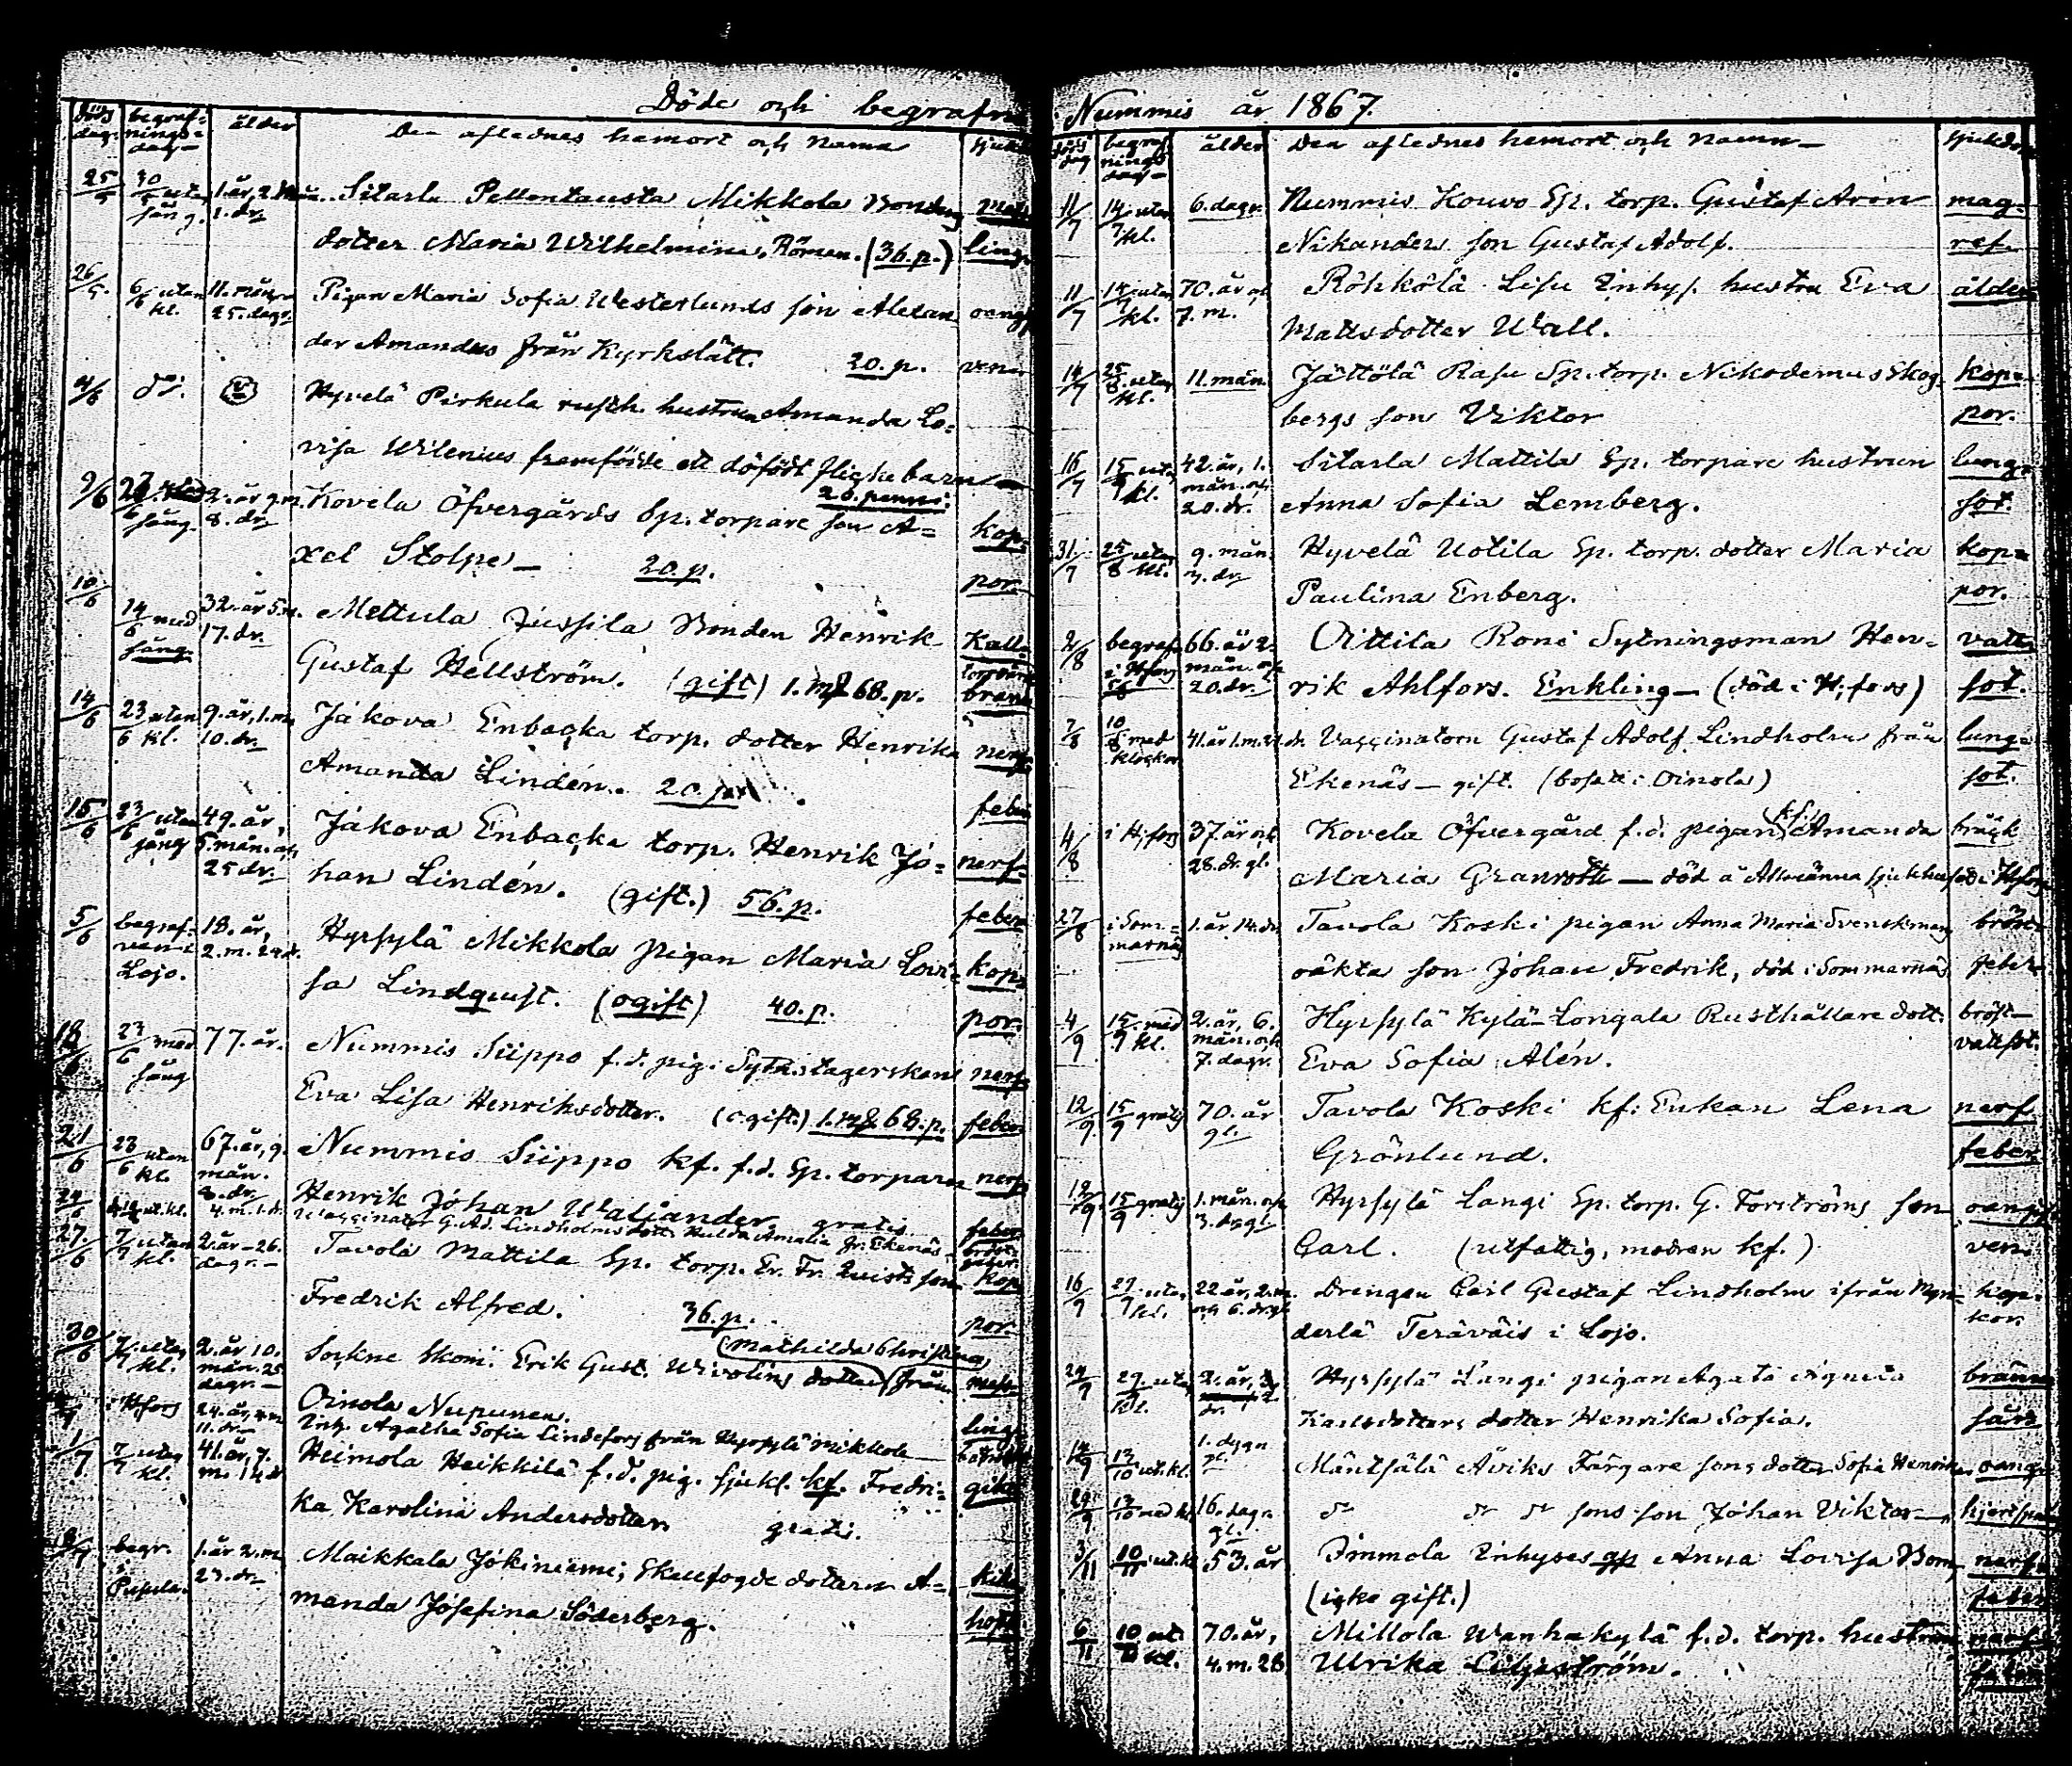 Döde och begrafne
döds dag. begraf= nings= dag- ålder Den aflednes hemort och namn sjukd.
25/5 30/5 utan 1. år, 2. mån. Sitarla Pellontausta Mikkola Bonden mass=
sång. 1. dr. dotter Maria Wilhelmina, Römen. (36.p.) ling.
26/5. 6/6 utan 11. mån. Pigan Maria Sofia Westerlunds son Alexan= oangif=
kl. 25. dagr. der Amandus från Kyrkslätt. 20. p. ven.
4/6 do. Hyvelä Pirkula rusth. hustrun Amanda Lo=
visa Wilenius framfödde ett dödfödt flickebarn
20. penni.
9/6 27/6 2. år 9. m. Kovela Öfvergårds Sp. torpare son A= kop=
sång. 8. dr. xel Stolpe — 20. p. por.
10/6 14/6 med 32. år 5. m. Mettula Jussila Bonden Henrik Kall=
sång. 17. dr. Gustaf Hellström. (gift) 1. mk 68. p. brand
14/6 23/6 utan 9. år, 1. m. Jakova Enbacka torp. dotter Henrika nerf=
kl. 10. dr. Amanda Lindén. 20. feber
15/6 23/6 utan 49. år, Jakova Enbacka torp. Henrik Jo= nerf=
sång 5. mån. och 25 dr. han Lindén. (gift.) 56. p. feber
5/6 begraf= 18. år, Hyrsylä Mikkola pigan Maria Lovi= kop=
ven i Lojo. 2. m. 24 d. sa Lindquist. (ogift) 40. p. por.
18/6 23/6 med 77. år. Nummis Siippo f.d. pig. Sytn.tagerskan nerf=
sång Eva Lisa Henriksdotter. (ogift.) 1. mk 68. p. feber
21/6 23/6 utan 67. år, 9. Nummis Siippo kf. f.d. Sp. torparen nerf
kl. mån. 3. dr. Henrik Johan Waliander. gratis feber
24/6 ut. kl. 4. m. 1. dr. Vaccinator G. Ad. Lindholms dott. Hulda Amalia fr. Ekenäs bröst
27./6 7/7 utan 2. år - 26. Tavola Mattila Sp. torp. Er. Fr. Quists son kop
kl. dagr. — Fredrik Alfred. 36. p. por.
(Mathilda Christina)
30/6 7/7 utan 2. år 10. Sockne Skom. Erik Gust. Wivolins dotter från mass=
kl. mån. 25 dagr. — Oinola Nupunen. ling
i Hfors 24. år, 4 m 11. dr. — Inh. Agatha Sofia Lindefors från Hyrsylä Mikkola
1/7 7/7 utan 41. år, 7. Heimola Heikkilä f.d. pig. sjukl. kf. Fredri= gikt
kl. m. 14 d. ka Karolina Andersdotter. gratis.
begr. i Pusula. 1. år 2. m. Maikkala Jokiniemi, Skallfogde dottern A= kik
23. dr. manda Josefina Söderberg. hosta
Nummis år 1867.
döds dag begraf= nings dag — ålder Den aflednes hemort och Namn — sjukdom
11/7 14/7 utan 6. dagr. Nummis Kouvo Sp. torp. Gustaf Aron mag=
kl. Nikanders son Gustaf Adolf. ref.
11/7 14/7 utan 70. år och Röhkölä Lisu Inhys. hustru Eva ålder
kl. 7. m. Mattsdotter Wall.
14/7 25/8 utan 11. mån. Jättölä Rasu Sp. torp. Nikodemus Skog= kop=
kl. bergs son Viktor por.
16/7 utan 42. år, 1. Sitarla Mattila Sp. torpare hustrun lung=
kl. mån. och 20. dr. Anna Sofia Lemberg. sot.
31/7 25/8 utan 9. mån. Hyvelä Uotila Sp. torp. dotter Maria kop=
kl. 3. dr Paulina Enberg. por.
2/8 begraf. 66. år 2. Oittila Roni Sytningsman Hen= vatt=
i Hfors mån. och 20. dr. rik Ahlfors. Enkling — (död i H:fors) sot.
7/8 10/8 med 41. år 1. m. 21 dr. Vaccinatorn Gustaf Adolf Lindholm från lung=
klockor Ekenäs — gift. (bosatt i Oinola) sot.
4/8 i H;fors 37. år och Kovela Öfvergård f.d. pigan (kf.) Amanda bräck
28. dr. gl. Maria Granroth — död å Allmänna sjukhuset i Hfors
27/8 i Som= 1. år 14. dr. Tavola Koski pigan Anna Maria Svenskman bröst=
marnäs oäkta son Johan Fredrik, död i Sommarnäs feber
4/9 15/9 med 2. år, 6. Hyrsylä Kylä-Longala Rusthållare dott. bröst—
kl. mån. och 7. dagr. Eva Sofia Alén. vattsot.
12/9. 15/9 gratis 70. år Tavola Koski kf: Enkan Lena nerf
gl. Grönlund. feber
12/9. 15/9 gratis 1. mån. och Hyrsylä Langi Sp. torp. G. Forströms son oangif=
3. dr gl. Carl. (utfattig, modren kf.) ven.
16/9 29/9 utan 22 år, 2. m. Drengen Carl Gustaf Lindholm ifrån Myn= kop=
kl. och 6. dr. gl. derlä Teräväis i Lojo. kor.
24/9 29/9. utan 2. år, Hyrsylä Langi pigan Agata Agneta bränn
kl. dr. Karlsdotters dotter Henrika Sofia. sår
13/10 ut. kl. 1. dygn gl. Mäntsälä Äviks Färgare sons dotter Sofia Henrika oangif
29/9. 13/10 med kl. 16. dagr. gl. do do do sons son Johan Viktor — hjertspann
3/11 10/11 ut. kl. 53. år Immola Inhyses Anna Lovisa Bom, nerf=
(icke gift.) feber
6/11 10/11 ut. 70. år, Millola Wanhakylä f.d. torp. hustrun nerf
kl. 4. m. 28 Ulrika Liljeström. feber